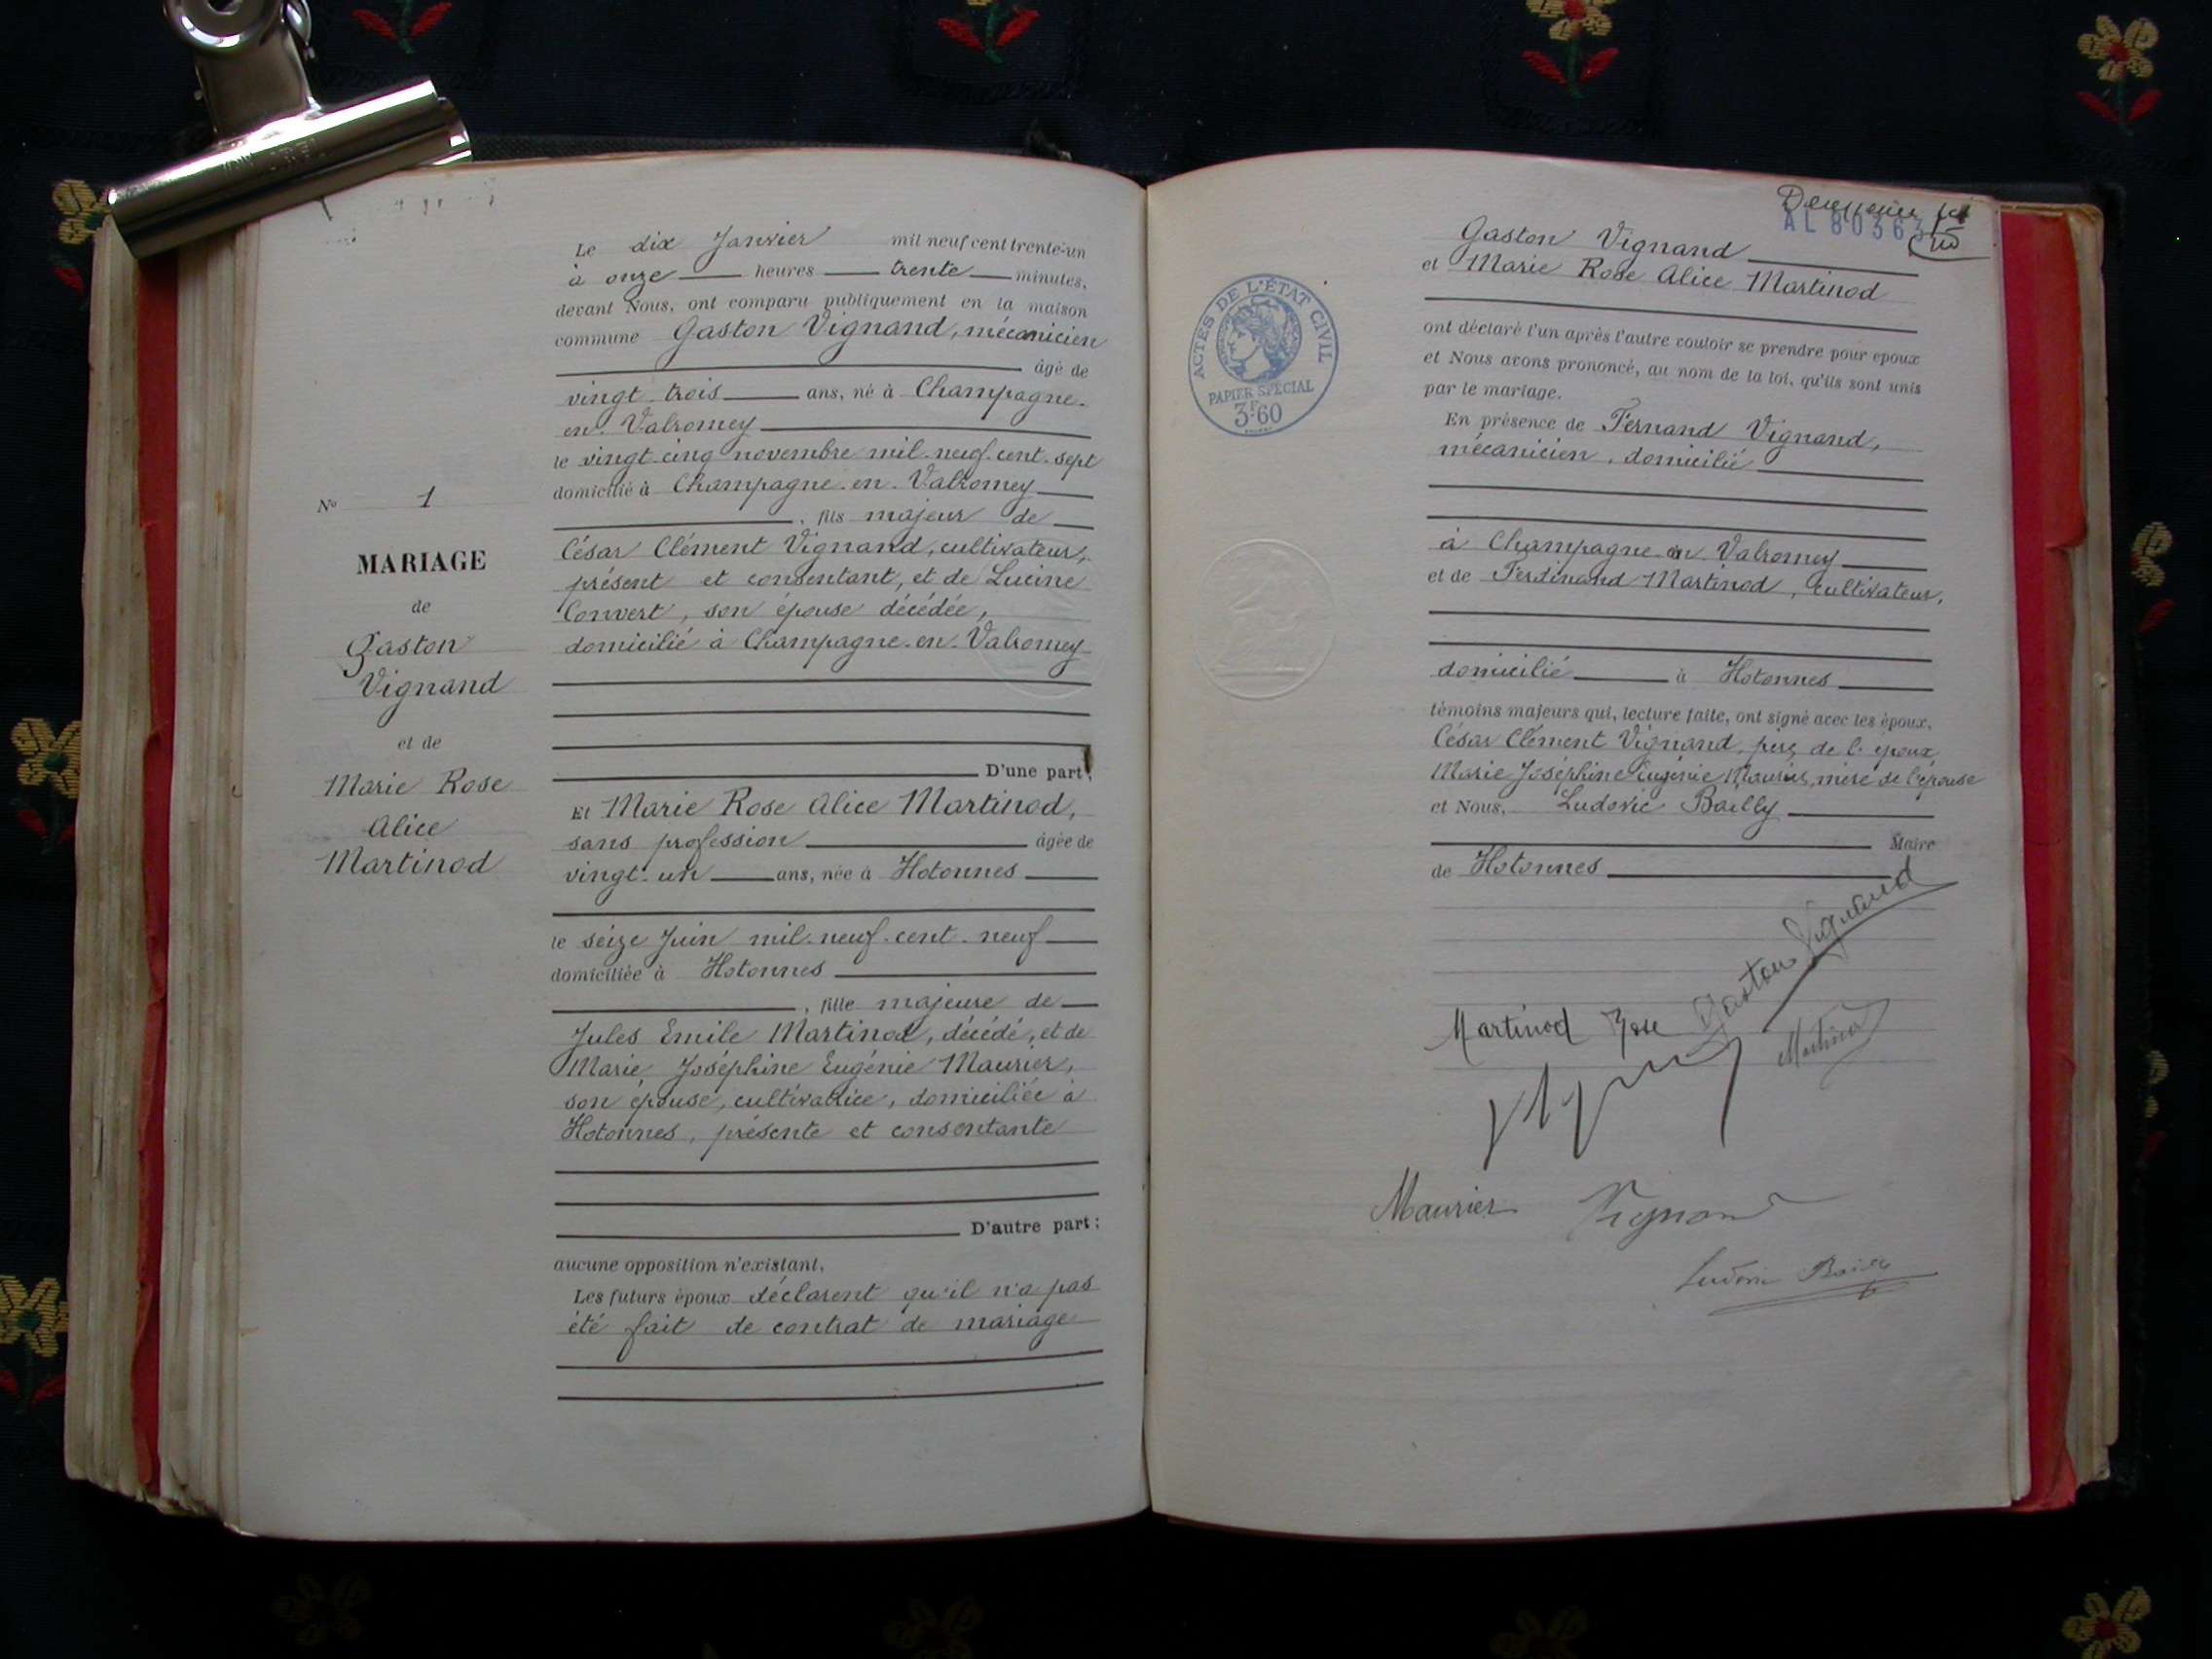 Le dix Janvier mil neuf cent trente-un
à onze heures trente minutes,
devant Nous, ont comparu publiquement en la maison
commune Gaston Vignand, mécanicien
âgé de
vingt-trois ans, né à Champagne-
en-Valromey
le vingt-cinq novembre mil-neuf-cent-sept
domicilié à Champagne-en-Valromey
, fils majeur de
César Clément Vignand, cultivateur,
présent et consentant, et de Lucine
Convert, son épouse décédée,
domicilié à Champagne-en-Valromey
D'une part;
Et Marie Rose Alice Martinod,
sans profession âgée de
vingt-un ans, née à Hotonnes
le seize Juin mil-neuf-cent-neuf
domiciliée à Hotonnes
, fille majeure de
Jules Emile Martinod, décédé, et de
Marie Joséphine Eugénie Maurier,
son épouse, cultivatrice, domiciliée à
Hotonnes, présente et consentante
D'autre part;
aucune opposition n'existant,
Les futurs époux déclarent qu'il n'a pas
été fait de contrat de mariage
No 1
MARIAGE
de
Gaston
Vignand
et de
Marie Rose
Alice
Martinod
AL 80363
Gaston Vignand
et Marie Rose Alice Martinod
ont déclaré l'un après l'autre vouloir se prendre pour époux
et Nous avons prononcé, au nom de la loi, qu'ils sont unis
par le mariage.
En présence de Fernand Vignand,
mécanicien, domicilié
à Champagne en Valromey
et de Ferdinand Martinod, cultivateur,
domicilié à Hotonnes
témoins majeurs qui, lecture faite, ont signé avec les époux,
César Clément Vignand, père de l'époux
Marie Joséphine Eugénie Maurier, mère de l'épouse
et Nous, Ludovic Bailly
Maire
de Hotonnes
ACTES DE L'ÉTAT CIVIL
PAPIER SPÉCIAL
3F60
Gaston Vignand
Martinod Rose
Martinod
Maurier Vignand
Ludovic Bailly